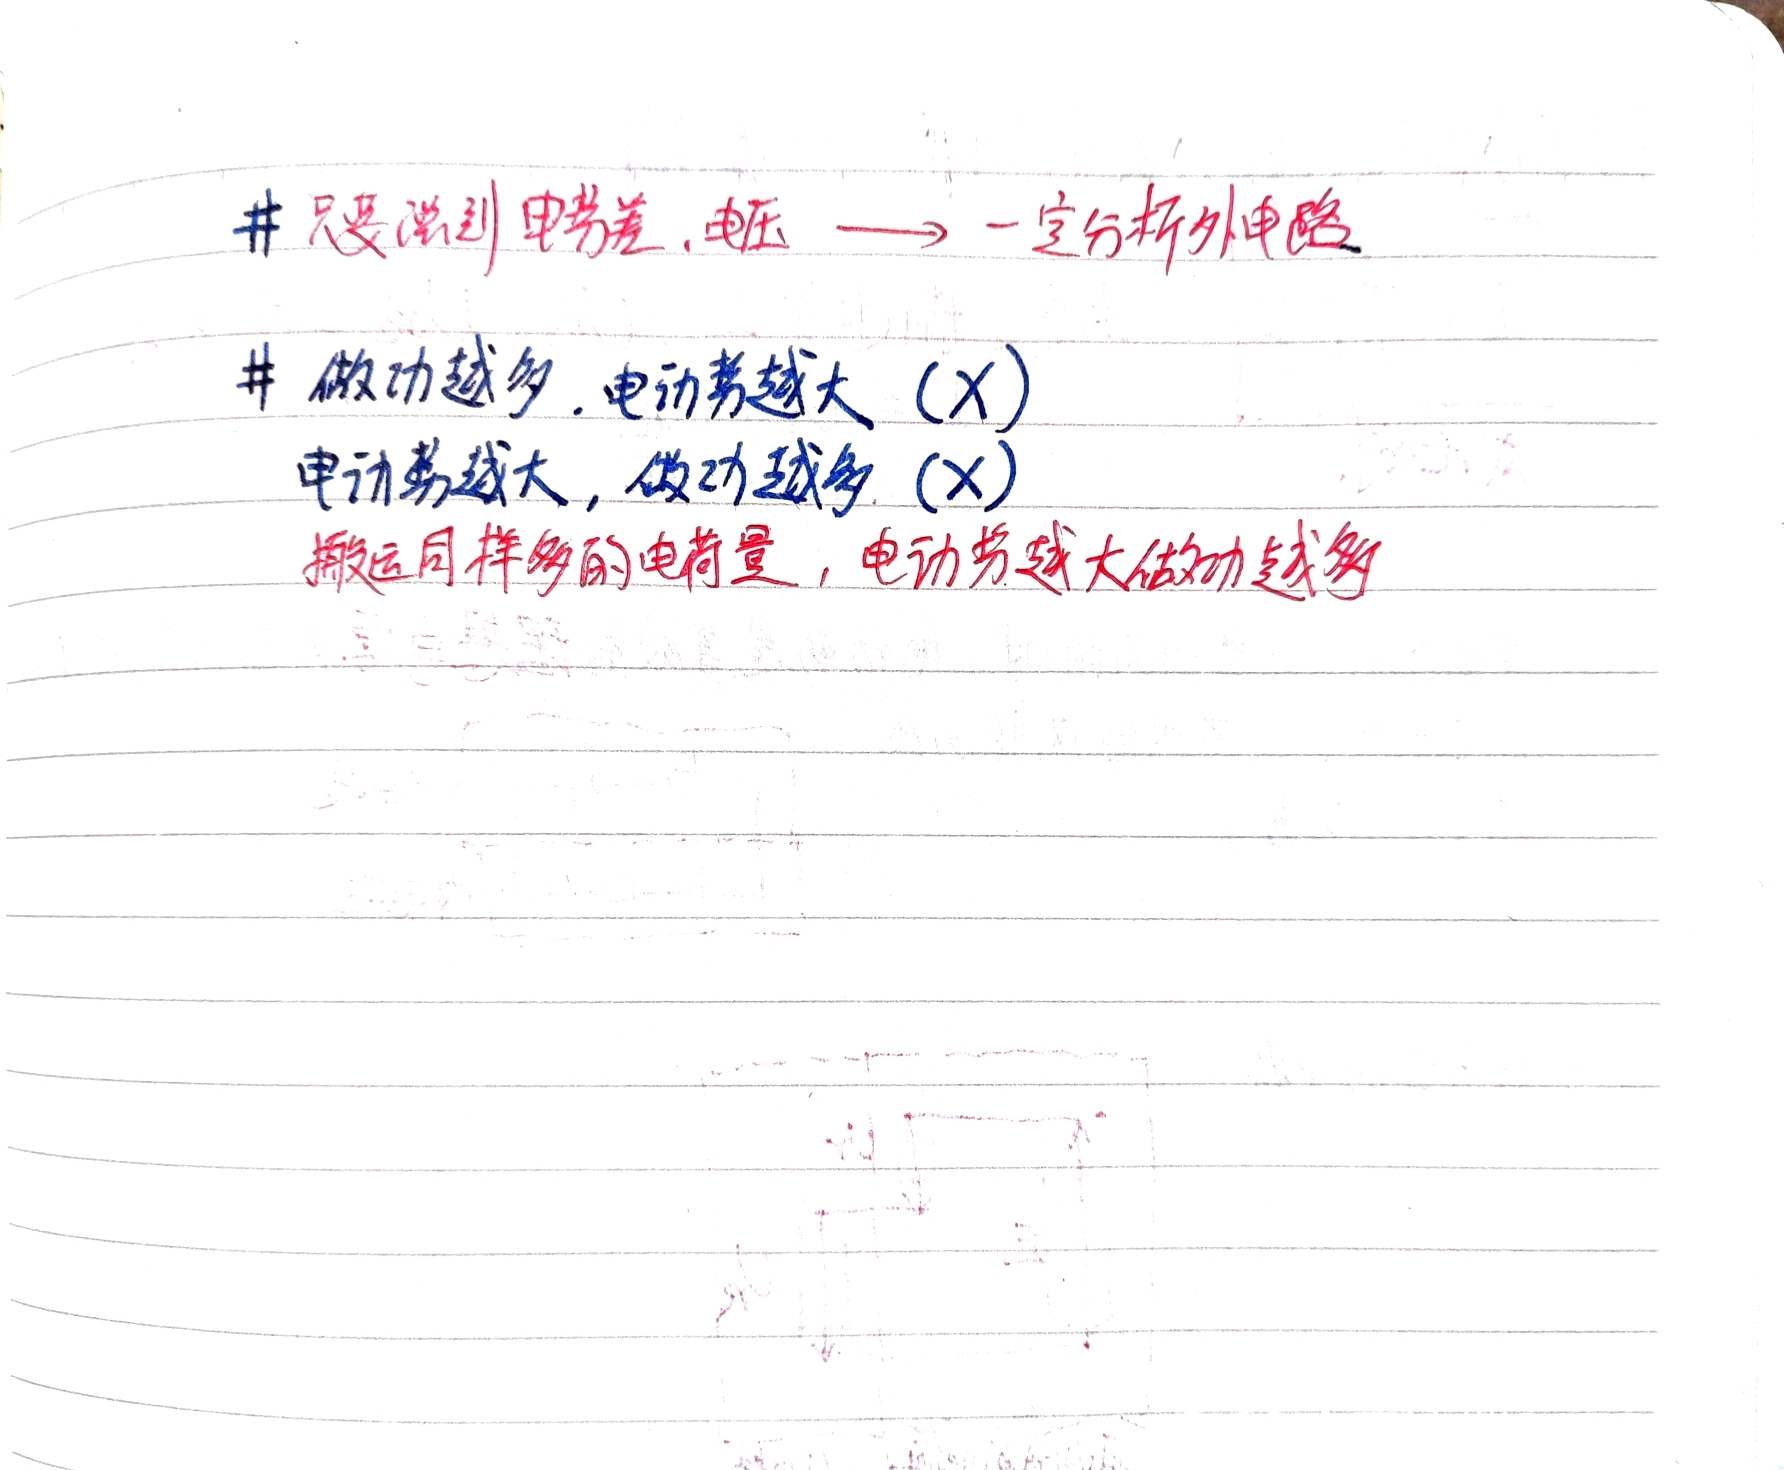 # 只要涉到电势差、电压 → 一定分析外电路
# 做功越多、电动势越大 (X)
电动势越大, 做功越多 (X)
搬运同样多的电荷量, 电动势越大做功越多